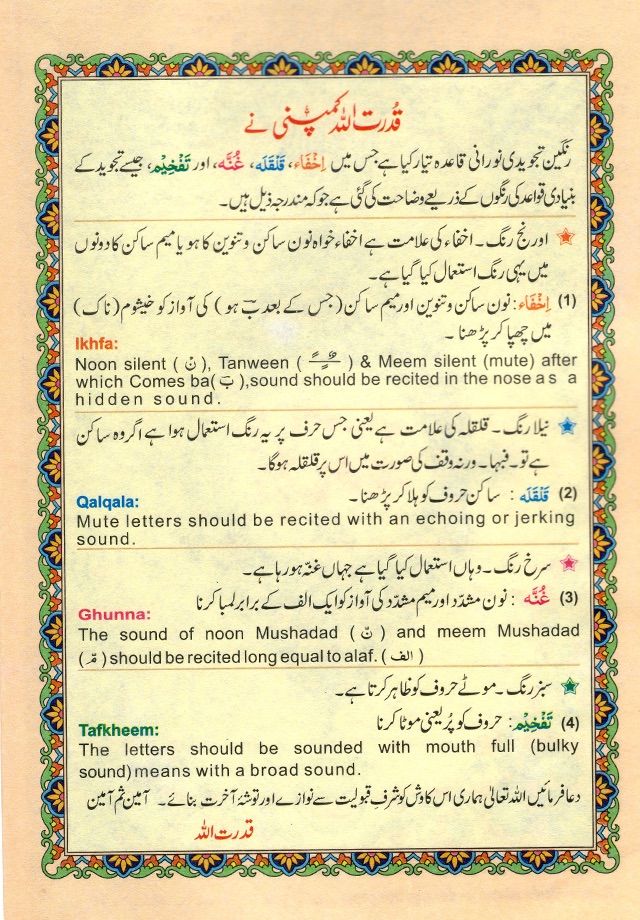 قُدرت اللہ کمپنی نے
رنگین تجویدی نورانی قاعدہ تیار کیا ہے جس میں اِخْفَاء، قَلْقَلَه، غُنَّه، اور تَفْخِيْم، جیسے تجوید کے
بنیادی قواعد کی رنگوں کے ذریعے وضاحت کی گئی ہے جو کہ مندرجہ ذیل ہیں۔
اورنج رنگ۔ اخفاء کی علامت ہے اخفاء خواہ نون ساکن و تنوین کا ہو یا میم ساکن کا دونوں
میں یہی رنگ استعمال کیا گیا ہے۔
(1) اِخْفَاء: نون ساکن و تنوین اور میم ساکن (جس کے بعد بَ ہو) کی آواز کو خیشوم (ناک)
میں چھپا کر پڑھنا۔
Ikhfa:
Noon silent ( نْ ), Tanween ( ـًـٍـٌ ) & Meem silent (mute) after
which Comes ba( بَ ),sound should be recited in the nose as a
hidden sound.
نیلا رنگ۔ قلقلہ کی علامت ہے یعنی جس حرف پر یہ رنگ استعمال ہوا ہے اگر وہ ساکن
ہے تو۔ فبہا۔ ورنہ وقف کی صورت میں اس پر قلقلہ ہوگا۔
(2) قَلْقَلَه : ساکن حروف کو ہلا کر پڑھنا۔
Qalqala:
Mute letters should be recited with an echoing or jerking
sound.
سرخ رنگ۔ وہاں استعمال کیا گیا ہے جہاں غنّہ ہو رہا ہے۔
(3) غُنَّه : نون مشدّد اور میم مشدّد کی آواز کو ایک الف کے برابر لمبا کرنا
Ghunna:
The sound of noon Mushadad ( نّ ) and meem Mushadad
( مّ ) should be recited long equal to alaf. ( الف )
سبز رنگ۔ موٹے حروف کو ظاہر کرتا ہے۔
(4) تَفْخِيْم: حروف کو پُر یعنی موٹا کرنا
Tafkheem:
The letters should be sounded with mouth full (bulky
sound) means with a broad sound.
دعا فرمائیں اللہ تعالیٰ ہماری اس کاوش کو شرفِ قبولیت سے نوازے اور توشۂ آخرت بنائے۔ آمین ثم آمین
قدرت اللہ